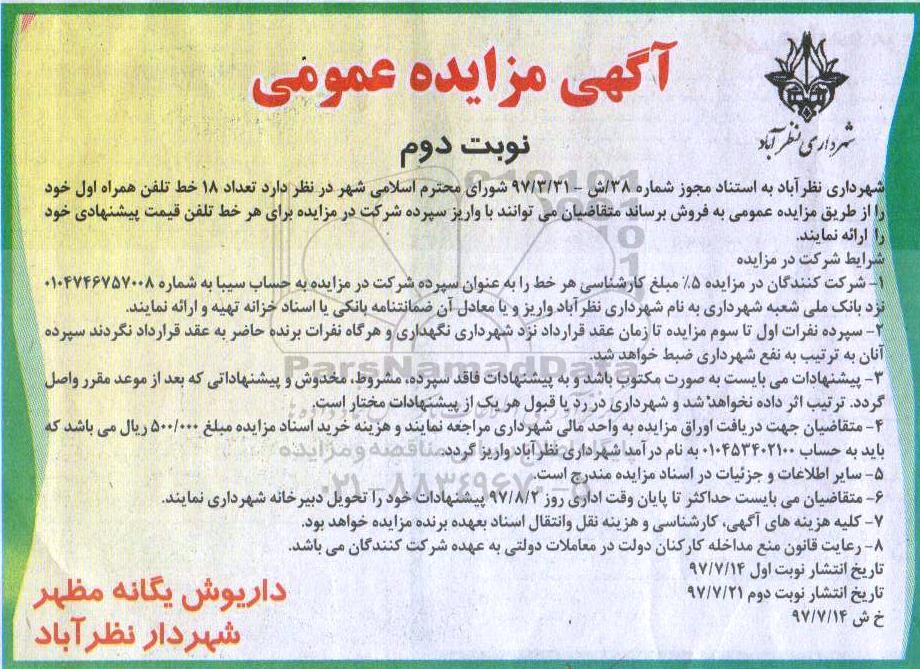 آگهی مزایده عمومی
شهرداری نظرآباد
نوبت دوم
شهرداری نظرآباد به استناد مجوز شماره ۳۸/ش - ۹۷/۳/۳۱ شورای محترم اسلامی شهر در نظر دارد تعداد ۱۸ خط تلفن همراه اول خود
را از طریق مزایده عمومی به فروش برساند متقاضیان می توانند با واریز سپرده شرکت در مزایده برای هر خط تلفن قیمت پیشنهادی خود
را ارائه نمایند.
شرایط شرکت در مزایده
۱- شرکت کنندگان در مزایده ۵٪ مبلغ کارشناسی هر خط را به عنوان سپرده شرکت در مزایده به حساب سیبا به شماره ۰۱۰۴۷۴۶۷۵۷۰۰۸
نزد بانک ملی شعبه شهرداری به نام شهرداری نظرآباد واریز و یا معادل آن ضمانتنامه بانکی یا اسناد خزانه تهیه و ارائه نمایند.
۲- سپرده نفرات اول تا سوم مزایده تا زمان عقد قرارداد نزد شهرداری نگهداری و هرگاه نفرات برنده حاضر به عقد قرارداد نگردند سپرده
آنان به ترتیب به نفع شهرداری ضبط خواهد شد.
۳- پیشنهادات می بایست به صورت مکتوب باشد و به پیشنهادات فاقد سپرده، مشروط، مخدوش و پیشنهاداتی که بعد از موعد مقرر واصل
گردد. ترتیب اثر داده نخواهد شد و شهرداری در رد یا قبول هر یک از پیشنهادات مختار است.
۴- متقاضیان جهت دریافت اوراق مزایده به واحد مالی شهرداری مراجعه نمایند و هزینه خرید اسناد مزایده مبلغ ۵۰۰/۰۰۰ ریال می باشد که
باید به حساب ۰۱۰۴۵۳۴۰۲۱۰۰ به نام درآمد شهرداری نظرآباد واریز گردد.
۵- سایر اطلاعات و جزئیات در اسناد مزایده مندرج است.
۶- متقاضیان می بایست حداکثر تا پایان وقت اداری روز ۹۷/۸/۲ پیشنهادات خود را تحویل دبیرخانه شهرداری نمایند.
۷- کلیه هزینه های آگهی، کارشناسی و هزینه نقل وانتقال اسناد بعهده برنده مزایده خواهد بود.
۸- رعایت قانون منع مداخله کارکنان دولت در معاملات دولتی به عهده شرکت کنندگان می باشد.
تاریخ انتشار نوبت اول ۹۷/۷/۱۴
تاریخ انتشار نوبت دوم ۹۷/۷/۲۱
خ ش ۹۷/۷/۱۴
داریوش یگانه مظهر
شهردار نظرآباد
ParsNamadData